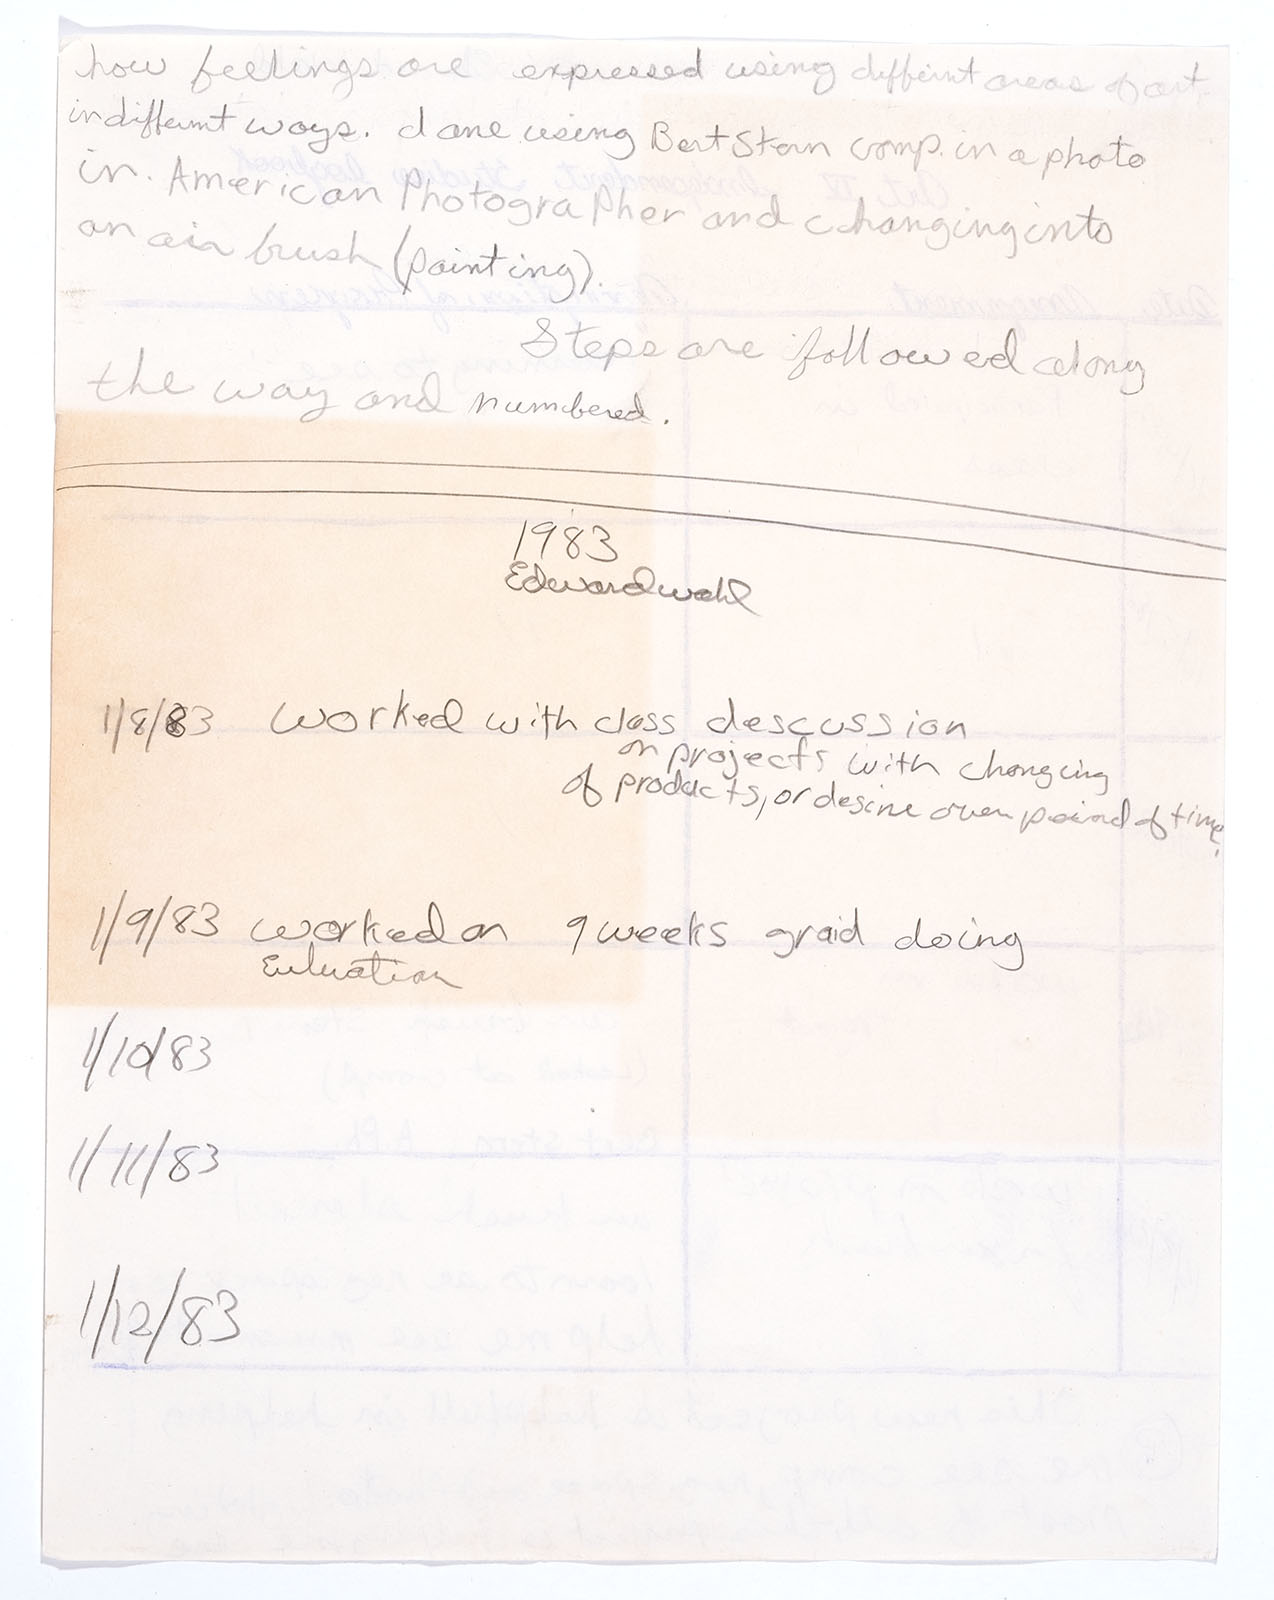 how feelings are expressed using differnt areas of art
in differnt ways. done using Bert Stern comp. in a photo
in American Photographer and changing into
an air brush (painting).
Steps are followed along
the way and numbered.
1983
Edward wahl
1/8/83 worked with class descussion
on projects with changing
of products, or desine over peiriod of time.
1/9/83 worked on 9 weeks graid doing
Euluation
1/10/83
1/11/83
1/12/83